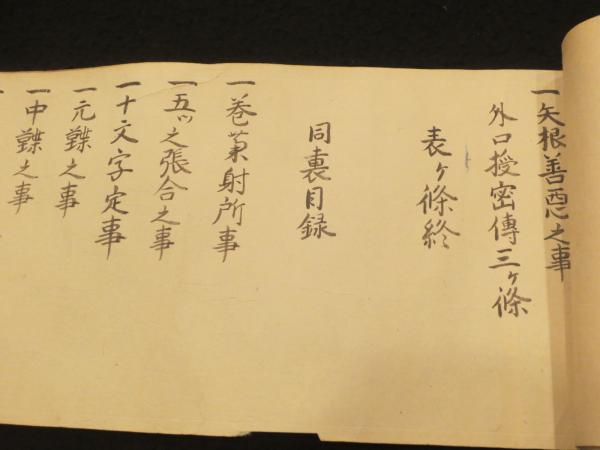 一矢根善悪之事
外口授密傳三ヶ條
表ヶ條終
同裏目録
一巻藁射所事
一五ツ之張合之事
一十文字定事
一元鞢之事
一中鞢之事
一